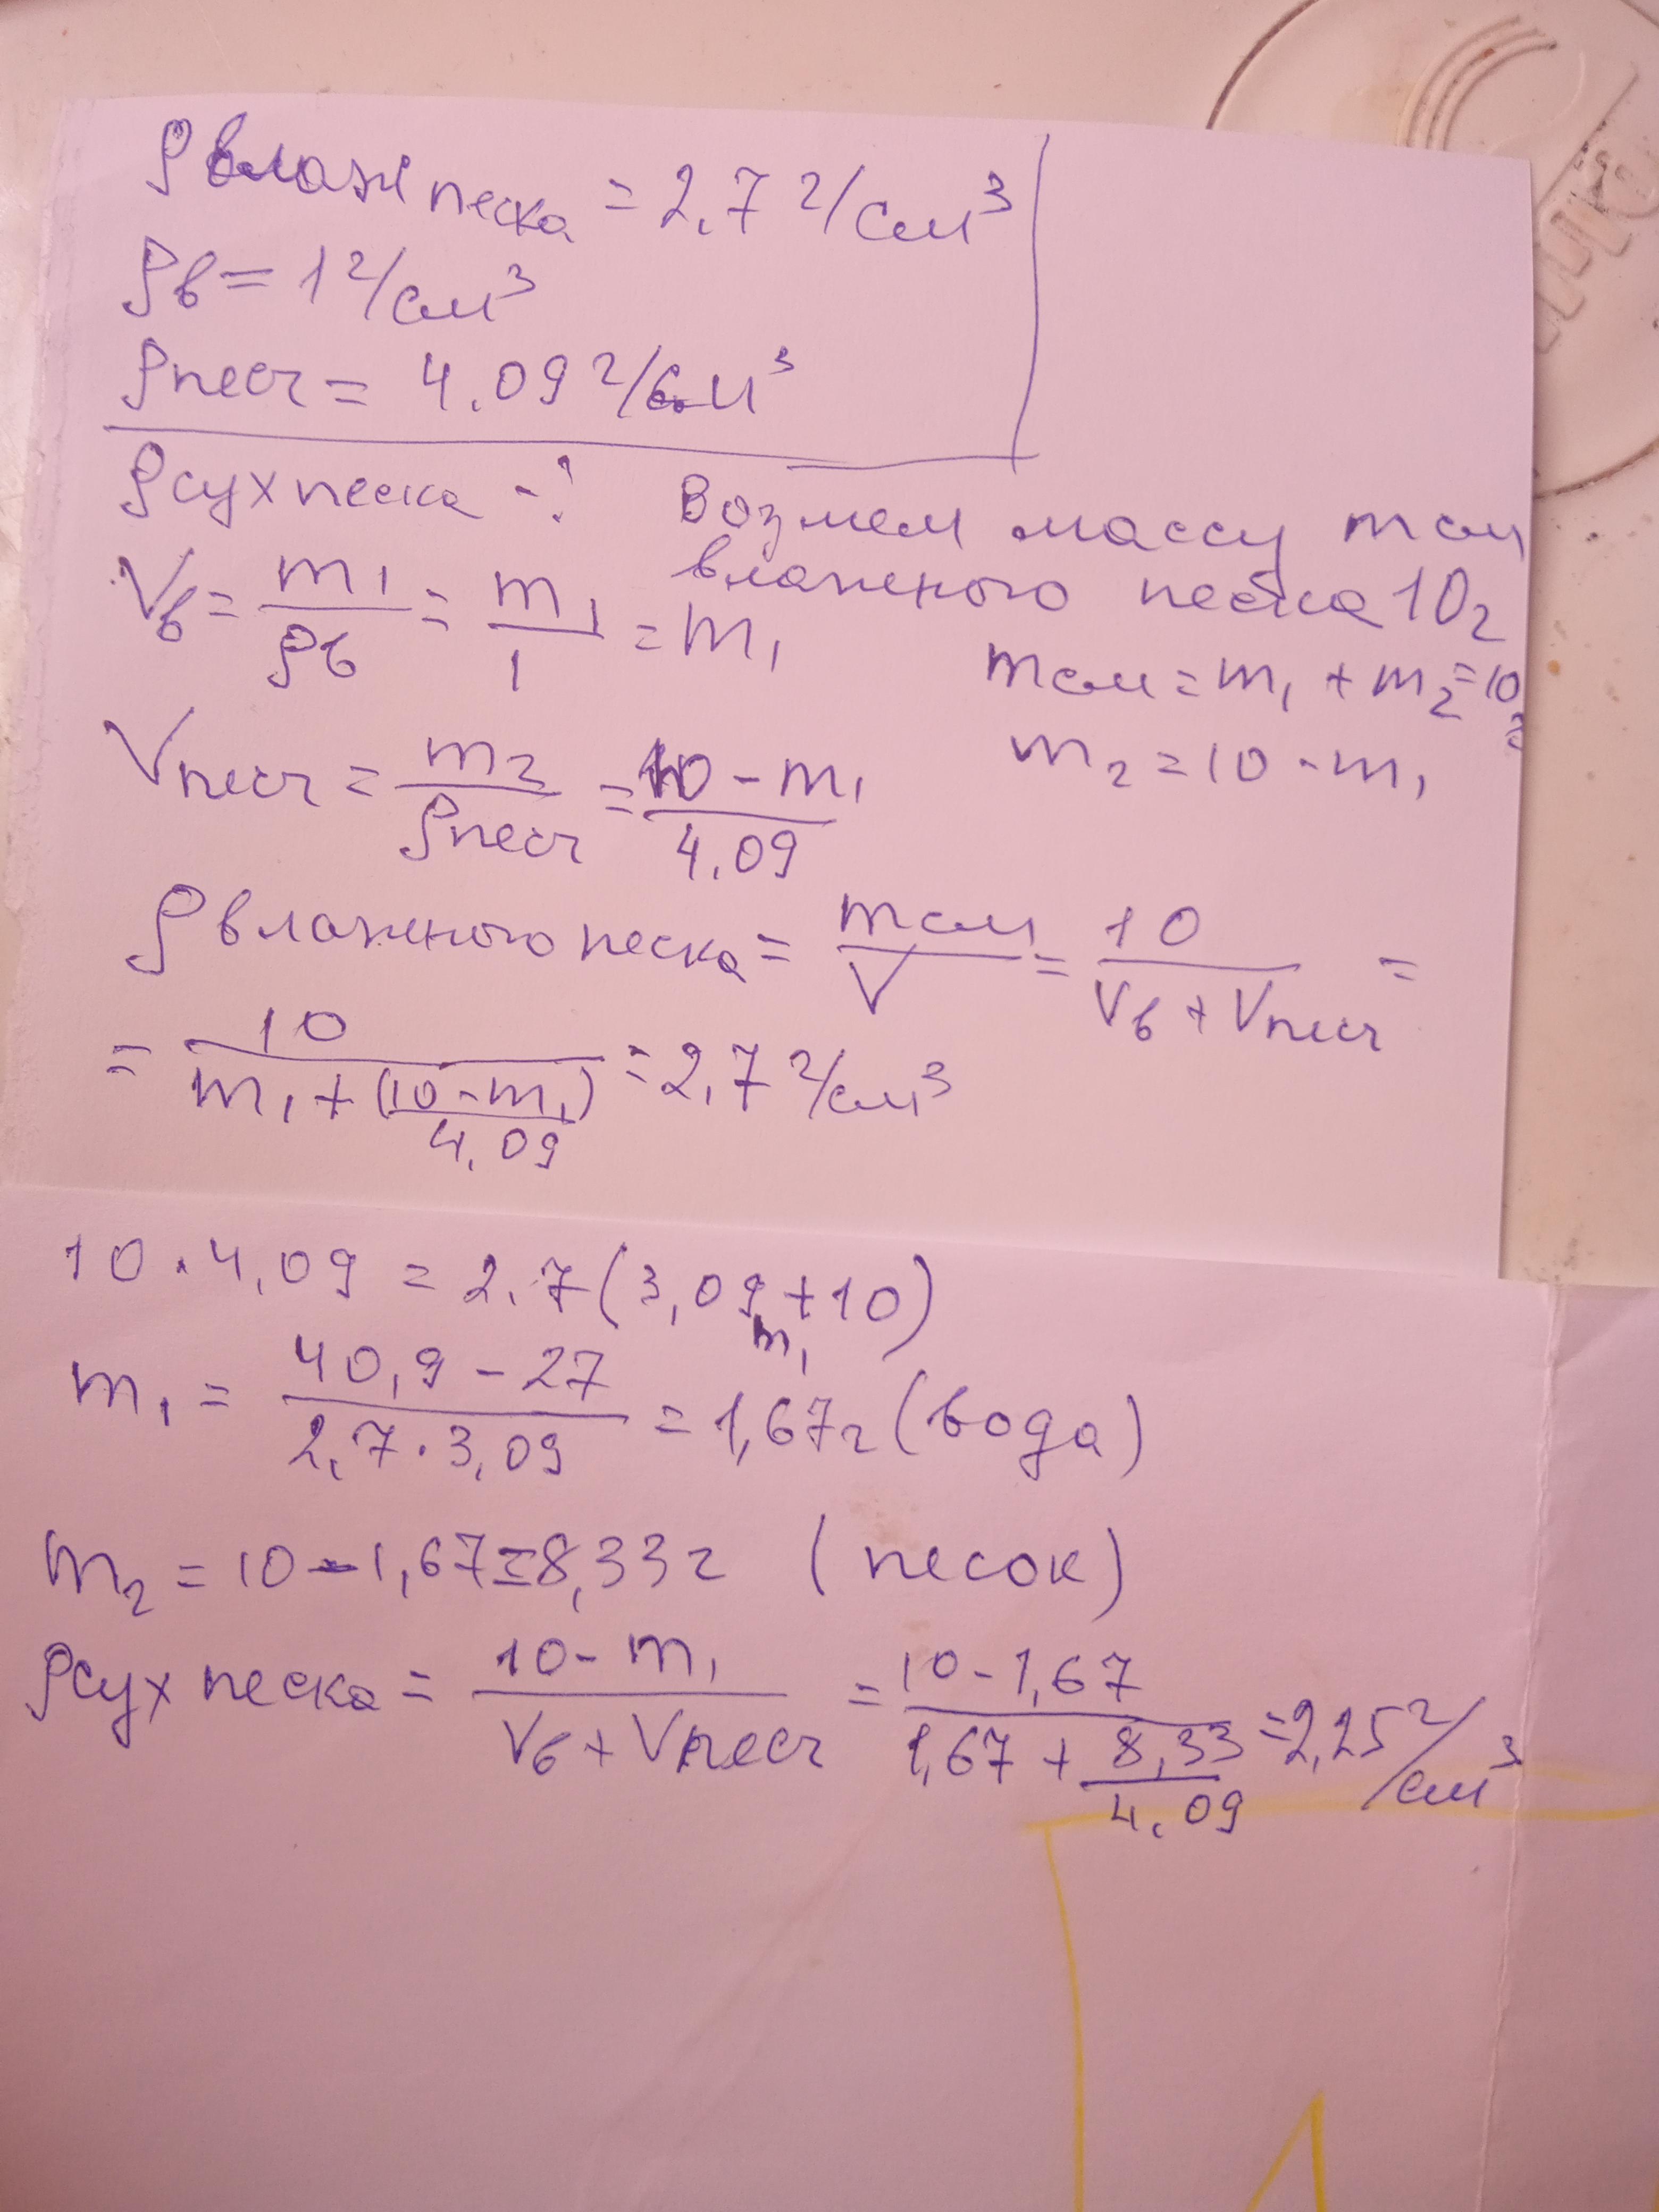 ρ влажн песка = 2,7 г/см³
ρв = 1 г/см³
ρ песч = 4,09 г/см³
ρ сух песка - ?
Возмем массу m см
влажного песка 10 г
Vв = m₁/ρв = m₁/1 = m₁
m см = m₁ + m₂ = 10 г
m₂ = 10 - m₁
Vпесч = m₂/ρпесч = (10 - m₁)/4,09
ρ влажного песка = m см/V = 10/(Vв + Vпесч) =
= 10/(m₁ + (10 - m₁)/4,09) = 2,7 г/см³
10 · 4,09 = 2,7 (3,09 m₁ + 10)
m₁ = (40,9 - 27)/(2,7 · 3,09) = 1,67 г (вода)
m₂ = 10 - 1,67 = 8,33 г (песок)
ρ сух песка = (10 - m₁)/(Vв + Vпесч) = (10 - 1,67)/(1,67 + 8,33/4,09) = 2,25 г/см³